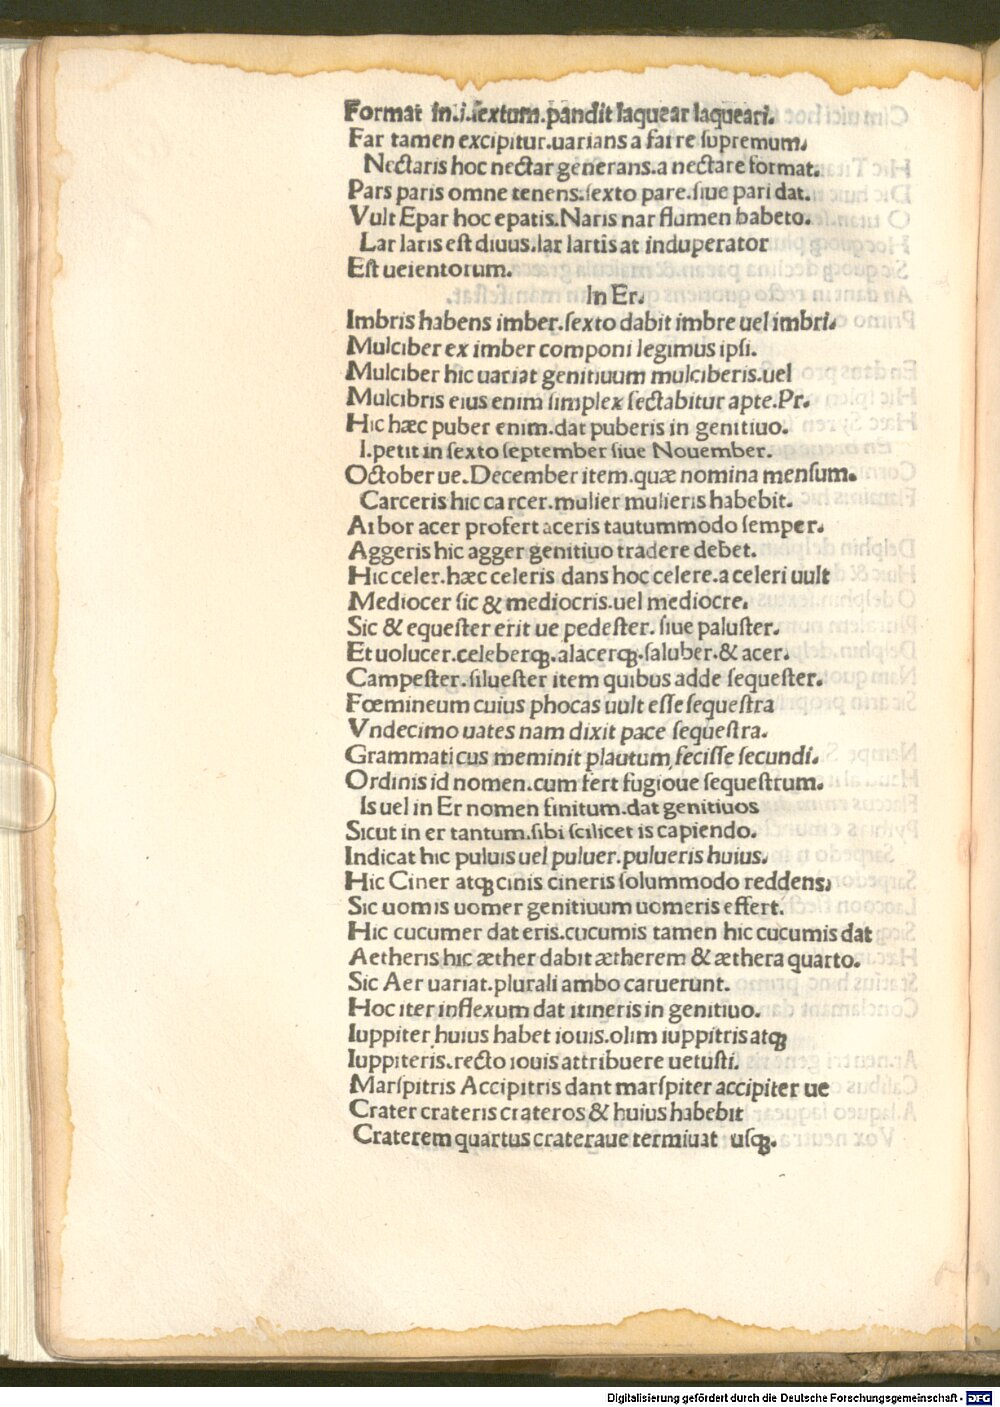 Format in.i.ſextum.pandit laquear laqueari.
Far tamen excipitur.uarians a farre ſupremum.
Nectaris hoc nectar generans.a nectare format.
Pars paris omne tenens:ſexto pare.ſiue pari dat.
Vult Epar hoc epatis.Naris nar flumen habeto.
Lar laris eſt diuus.lar lartis at induperator
Eſt ueientorum.
In Er.
Imbris habens imber.ſexto dabit imbre uel imbri.
Mulciber ex imber componi legimus ipſi.
Mulciber hic uariat genitiuum mulciberis.uel
Mulcibris eius enim ſimplex ſectabitur apte.Pr.
Hic hæc puber enim.dat puberis in genitiuo.
I.petit in ſexto ſeptember ſiue Nouember.
October ue.December item.quæ nomina menſum.
Carceris hic carcer.mulier mulieris habebit.
Arbor acer profert aceris tautummodo ſemper.
Aggeris hic agger genitiuo tradere debet.
Hic celer.hæc celeris dans hoc celere.a celeri uult
Mediocer ſic & mediocris.uel mediocre.
Sic & equeſter erit ue pedeſter. ſiue paluſter.
Et uolucer.celeberqꝫ.alacerqꝫ.ſaluber.& acer.
Campeſter.ſilueſter item quibus adde ſequeſter.
Fœmineum cuius phocas uult eſſe ſequeſtra
Vndecimo uates nam dixit pace ſequeſtra.
Grammaticus meminit plautum feciſſe ſecundi.
Ordinis id nomen.cum fert fugioue ſequeſtrum.
Is uel in Er nomen finitum.dat genitiuos
Sicut in er tantum.ſibi ſcilicet is capiendo.
Indicat hic puluis uel puluer.pulueris huius.
Hic Ciner atqꝫ cinis cineris ſolummodo reddens.
Sic uomis uomer genitiuum uomeris effert.
Hic cucumer dat eris.cucumis tamen hic cucumis dat
Aetheris hic æther dabit ætherem & æthera quarto.
Sic Aer uariat.plurali ambo caruerunt.
Hoc iter inflexum dat itineris in genitiuo.
Iuppiter huius habet iouis.olim iuppitris atqꝫ
Iuppiteris.recto iouis attribuere uetuſti.
Marſpitris Accipitris dant marſpiter accipiter ue
Crater crateris crateros & huius habebit
Craterem quartus crateraue termiuat uſqꝫ.
Digitalisierung gefördert durch die Deutsche Forschungsgemeinschaft - DFG